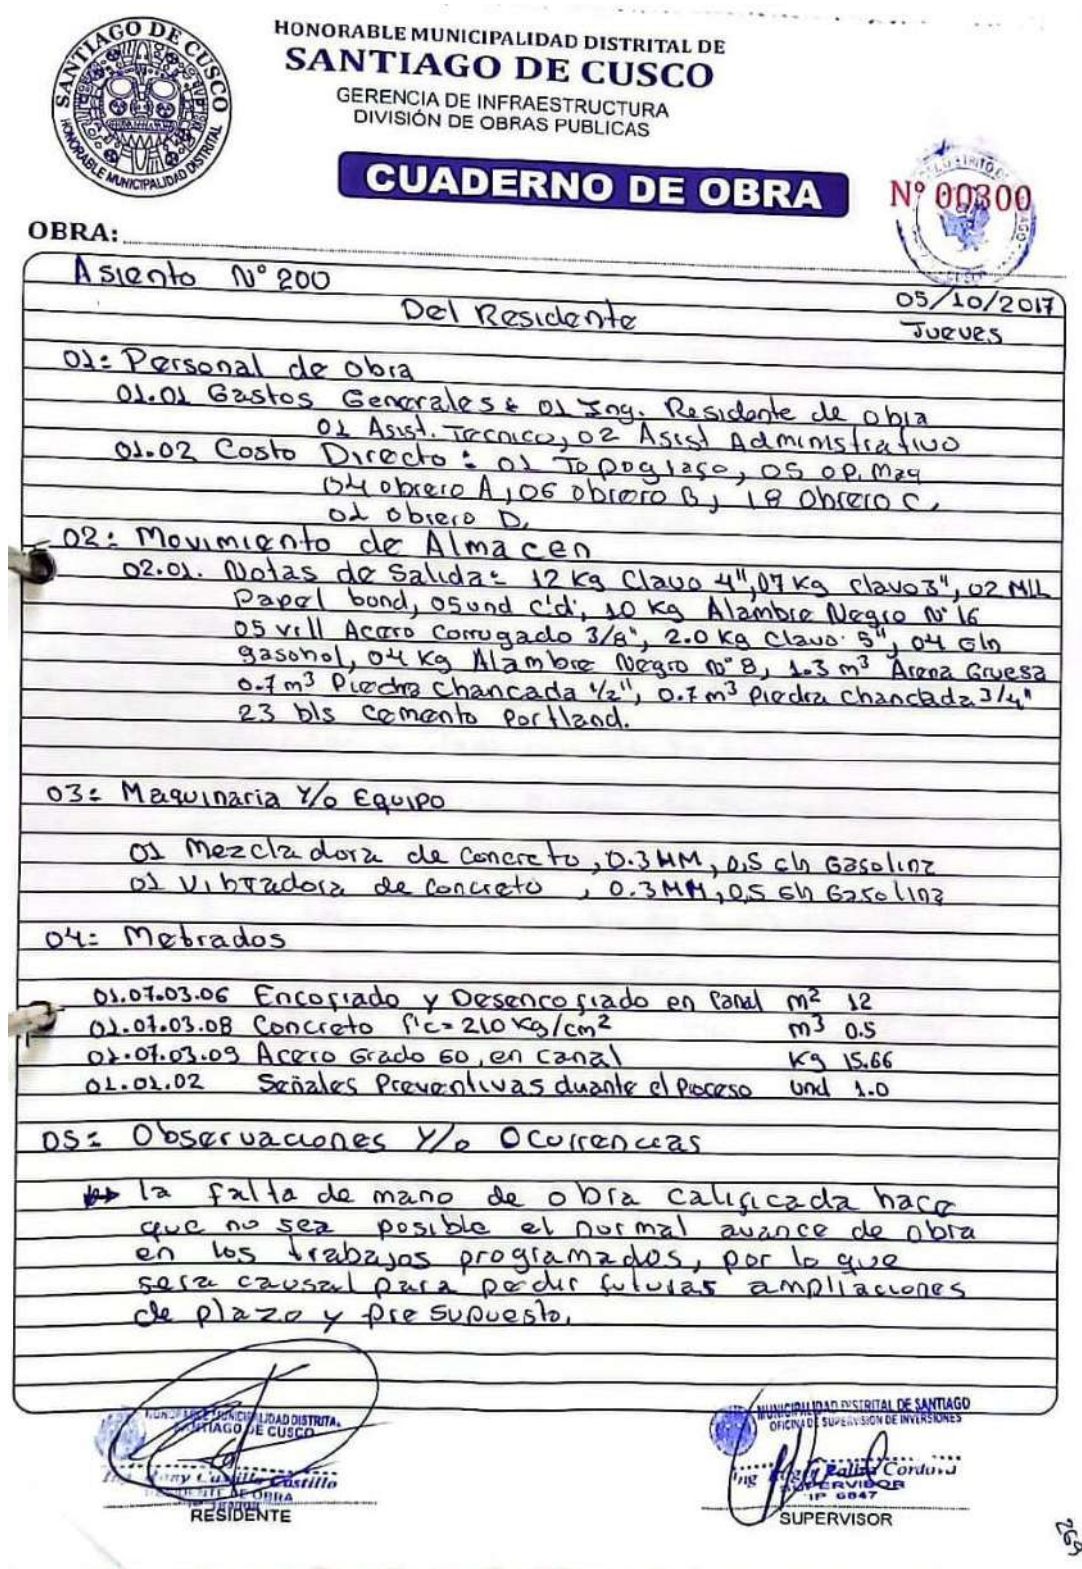 HONORABLE MUNICIPALIDAD DISTRITAL DE
SANTIAGO DE CUSCO
GERENCIA DE INFRAESTRUCTURA
DIVISIÓN DE OBRAS PUBLICAS
SANTIAGO DE CUSCO
HONORABLE MUNICIPALIDAD DISTRITAL
CUADERNO DE OBRA
Nº 00300
OBRA:
Asiento N° 200
05/10/2017
Del Residente
Jueves
01: Personal de obra
01.01 Gastos Generales: 01 Ing. Residente de obra
01 Asist. Tecnico, 02 Asist Administrativo
01.02 Costo Directo: 01 Topografo, 05 op. Maq
04 obrero A, 06 obrero B, 18 Obrero C,
01 obrero D.
02: Movimiento de Almacen
02.01. Notas de Salida: 12 Kg Clavo 4", 07 Kg clavo 3", 02 Mll
Papel bond, 05 und c'd, 10 Kg Alambre Negro N° 16
05 vrll Acero Corrugado 3/8", 2.0 Kg Clavo 5", 04 Gln
gasohol, 04 Kg Alambre Negro N° 8, 1.3 m³ Arena Gruesa
0.7 m³ Piedra Chancada 1/2", 0.7 m³ Piedra Chancada 3/4"
23 bls Cemento Portland.
03: Maquinaria Y/o Equipo
01 Mezcladora de Concreto, 0.3 HM, 0.5 Gln Gasolina
01 Vibradora de Concreto, 0.3 HM, 0.5 Gln Gasolina
04: Metrados
01.07.03.06 Encofrado y Desencofrado en Canal m² 12
01.07.03.08 Concreto f'c= 210 Kg/cm² m³ 0.5
01.07.03.09 Acero Grado 60, en canal Kg 15.66
01.01.02 Señales Preventivas duante el Proceso und 1.0
05: Observaciones Y/o Ocurrencias
la falta de mano de obra calificada hace
que no sea posible el normal avance de obra
en los trabajos programados, por lo que
sera causal para pedir futuras ampliaciones
de plazo y presupuesto.
MUNICIPALIDAD DISTRITAL
SANTIAGO DE CUSCO
Castillo Castillo
RESIDENTE DE OBRA
RESIDENTE
MUNICIPALIDAD DISTRITAL DE SANTIAGO
OFICINA DE SUPERVISION DE INVERSIONES
Ing Cordova
SUPERVISOR
SUPERVISOR
269